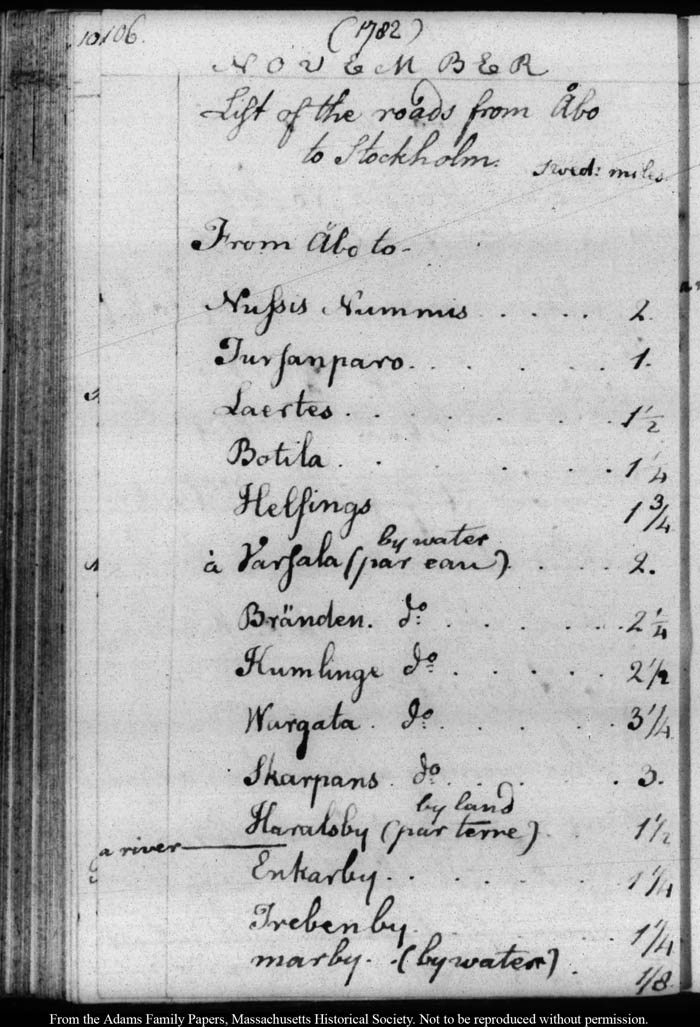 10106. (1782)
NOVEMBER
List of the roads from Åbo
to Stockholm.
Swed: miles
From Åbo to -
Nussis Nummis . . . . 2.
Tursanparo . . . . 1.
Laertes . . . . 1 1/2
Botila . . . . 1 1/4
Helsings 1 3/4
by water
à Varsala (par eau) . . . 2.
Bränden. do . . . . 2 1/4
Kumlinge do . . . . 2 1/2
Wargata. do . . . . 3 1/4
Skarpans. do . . . . 3.
by land
Haralsby (par terre) . 1 1/2
a river
Enkarby . . . . 1 1/4
Trebenby . . 1 1/4
marby. (by water) . 1/8
From the Adams Family Papers, Massachusetts Historical Society. Not to be reproduced without permission.